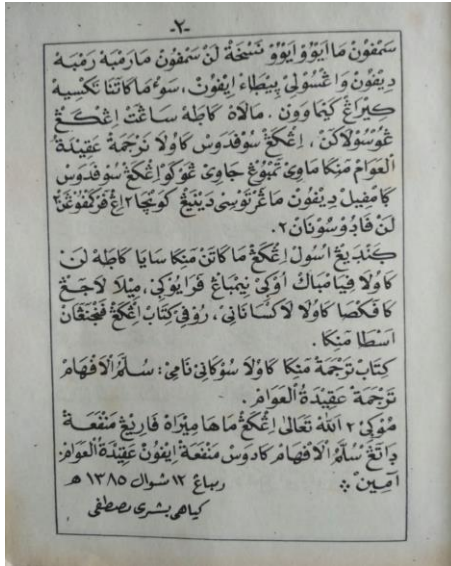 -٢-
سمفون ما ايوو ٢ ايوو نسخة لن سمفون مارمبه رمبه
ديفون واڠسولي بيطاء ايفون، سوء ماكاتنا تكسيه
كيراڠ كيماوون. مالاه كاطه ساڠت اڠكڠ
ڠوسولاكن، اڠكڠ سوفدوس كاولا ترجمة عقيدة
العوام منكا ماوي تمبوڠ جاوي ڠوكو اڠكڠ سوفدوس
كامفيل ديفون ماڠرتوسي دينيڠ كونچا٢ اڠ فركمفوڠن٢
لن فادوسونان٢.
كنديڠ اسول اڠكڠ ماكاتن منكا سايا كاطه لن
كاولا فيامباك اوكي نيمباڠ فرايوكي، ميلا لاجڠ
كافكصا كاولا لاكساناني، روفي كتاب اڠكڠ فنجنڠان
اسطا منكا.
كتاب ترجمة منكا كاولا سوكاني نامي: سلم الافهام
ترجمة عقيدة العوام.
موكي٢ الله تعالى اڠكڠ ماها ميراه فاريڠ منفعة
داتڠ سلم الافهام كادوس منفعة ايفون عقيدة العوام.
آمين
رمباڠ ١٢ شوال ١٣٨٥ هـ
كياهي بشرى مصطفى